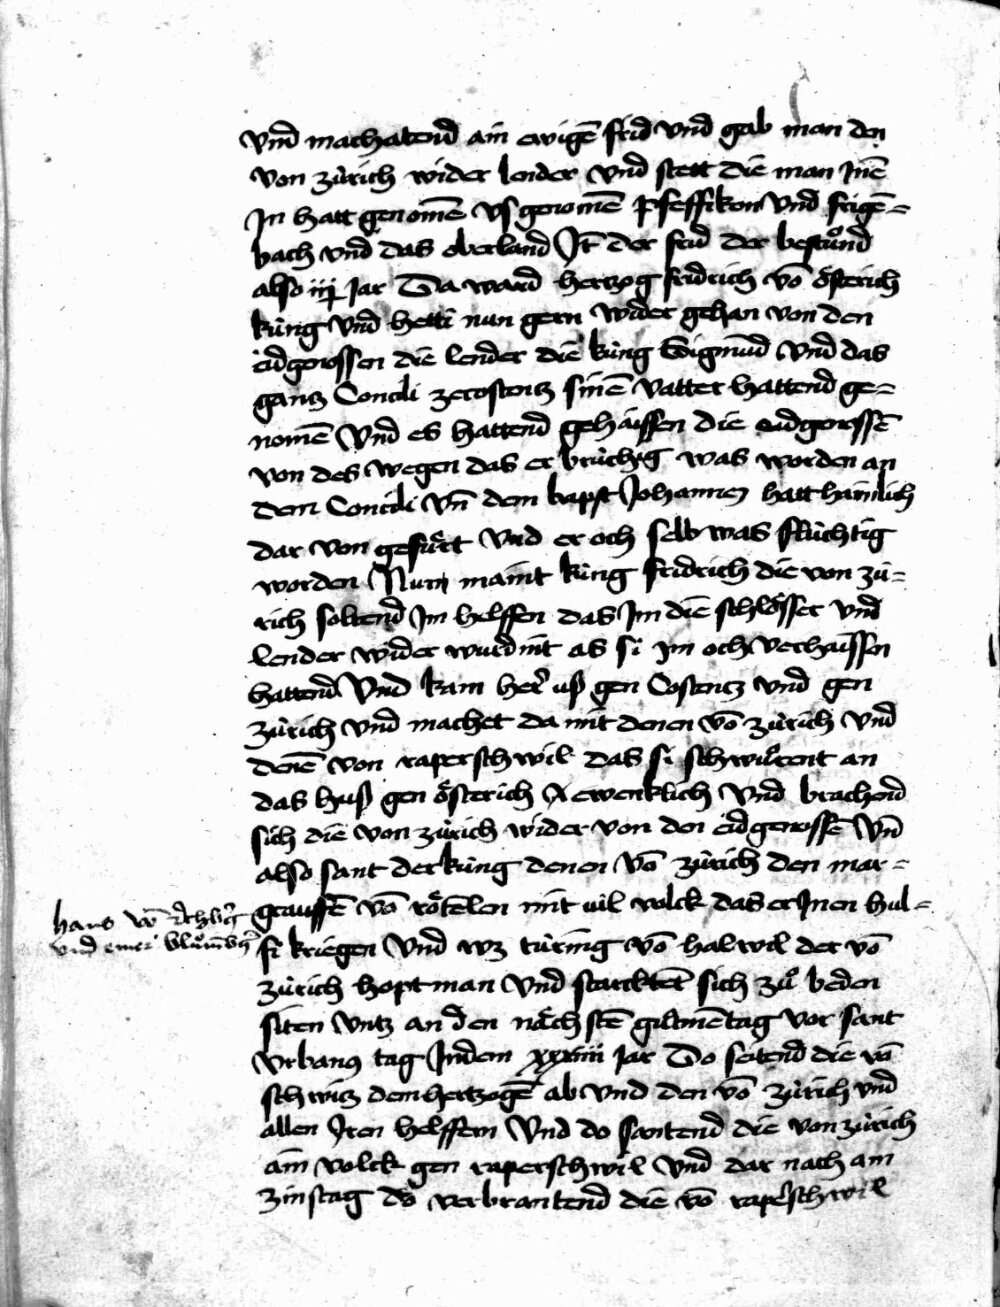 vnd machattend ain ewigē frid vnd gab man den
von zürich wider lender vnd stett die man Inē
In hatt genomē vs genomē Pfeffikon vnd frigē=
bach vnd das oberland Jt der frid der bestůnd
also iij Jar Da ward hertzog fridrich vō österich
küng vnd hetti nun gern wider gehan von den
aidgenossen die lender die küng Sigmūd vnd das
gantz Concili ze costentz sinē vatter hattend ge=
nomē vnd es hattend gehaissen die aidgenossē
von des wegen das er brüchig was worden an
dem Concili vn̄ dem bapst Johannes hatt haimlich
dar von gefürt vnd er och selb was flüchtig
worden Nun maint küng fridrich die von zü=
rich soltend Im helffen das Im die schlösser vnd
lender wider wurdint as si im och verhaissen
hattend vnd kam her uß gen Costentz vnd gen
zürich vnd machet da mit denen vō zürich vnd
denē von raperschwil das si schwůrent an
das huß gen österich ewenklich vnd brachend
sich die von zürich wider von den aidgenossē vn̄
also sant der küng denen vō zürich den mar=
grauffē vō rötelen mit uil volck das er Inen hul=
fi kriegen vnd wz türing vō halwil der vō
zürich hoptman vnd starcktēt sich zů beden
siten vntz an den nächstē gůtmētag vor sant
vrbans tag Indem xxxxiiii Jar Do seitend die vō
schwitz dem hertzogē ab vnd den vō zürich vnd
allen Iren helffern vnd do santend die von zürich
ain volck gen raperschwil vnd dar nach am
zinstag do verbrantend die vō rapērschwil
hans vō
vnd